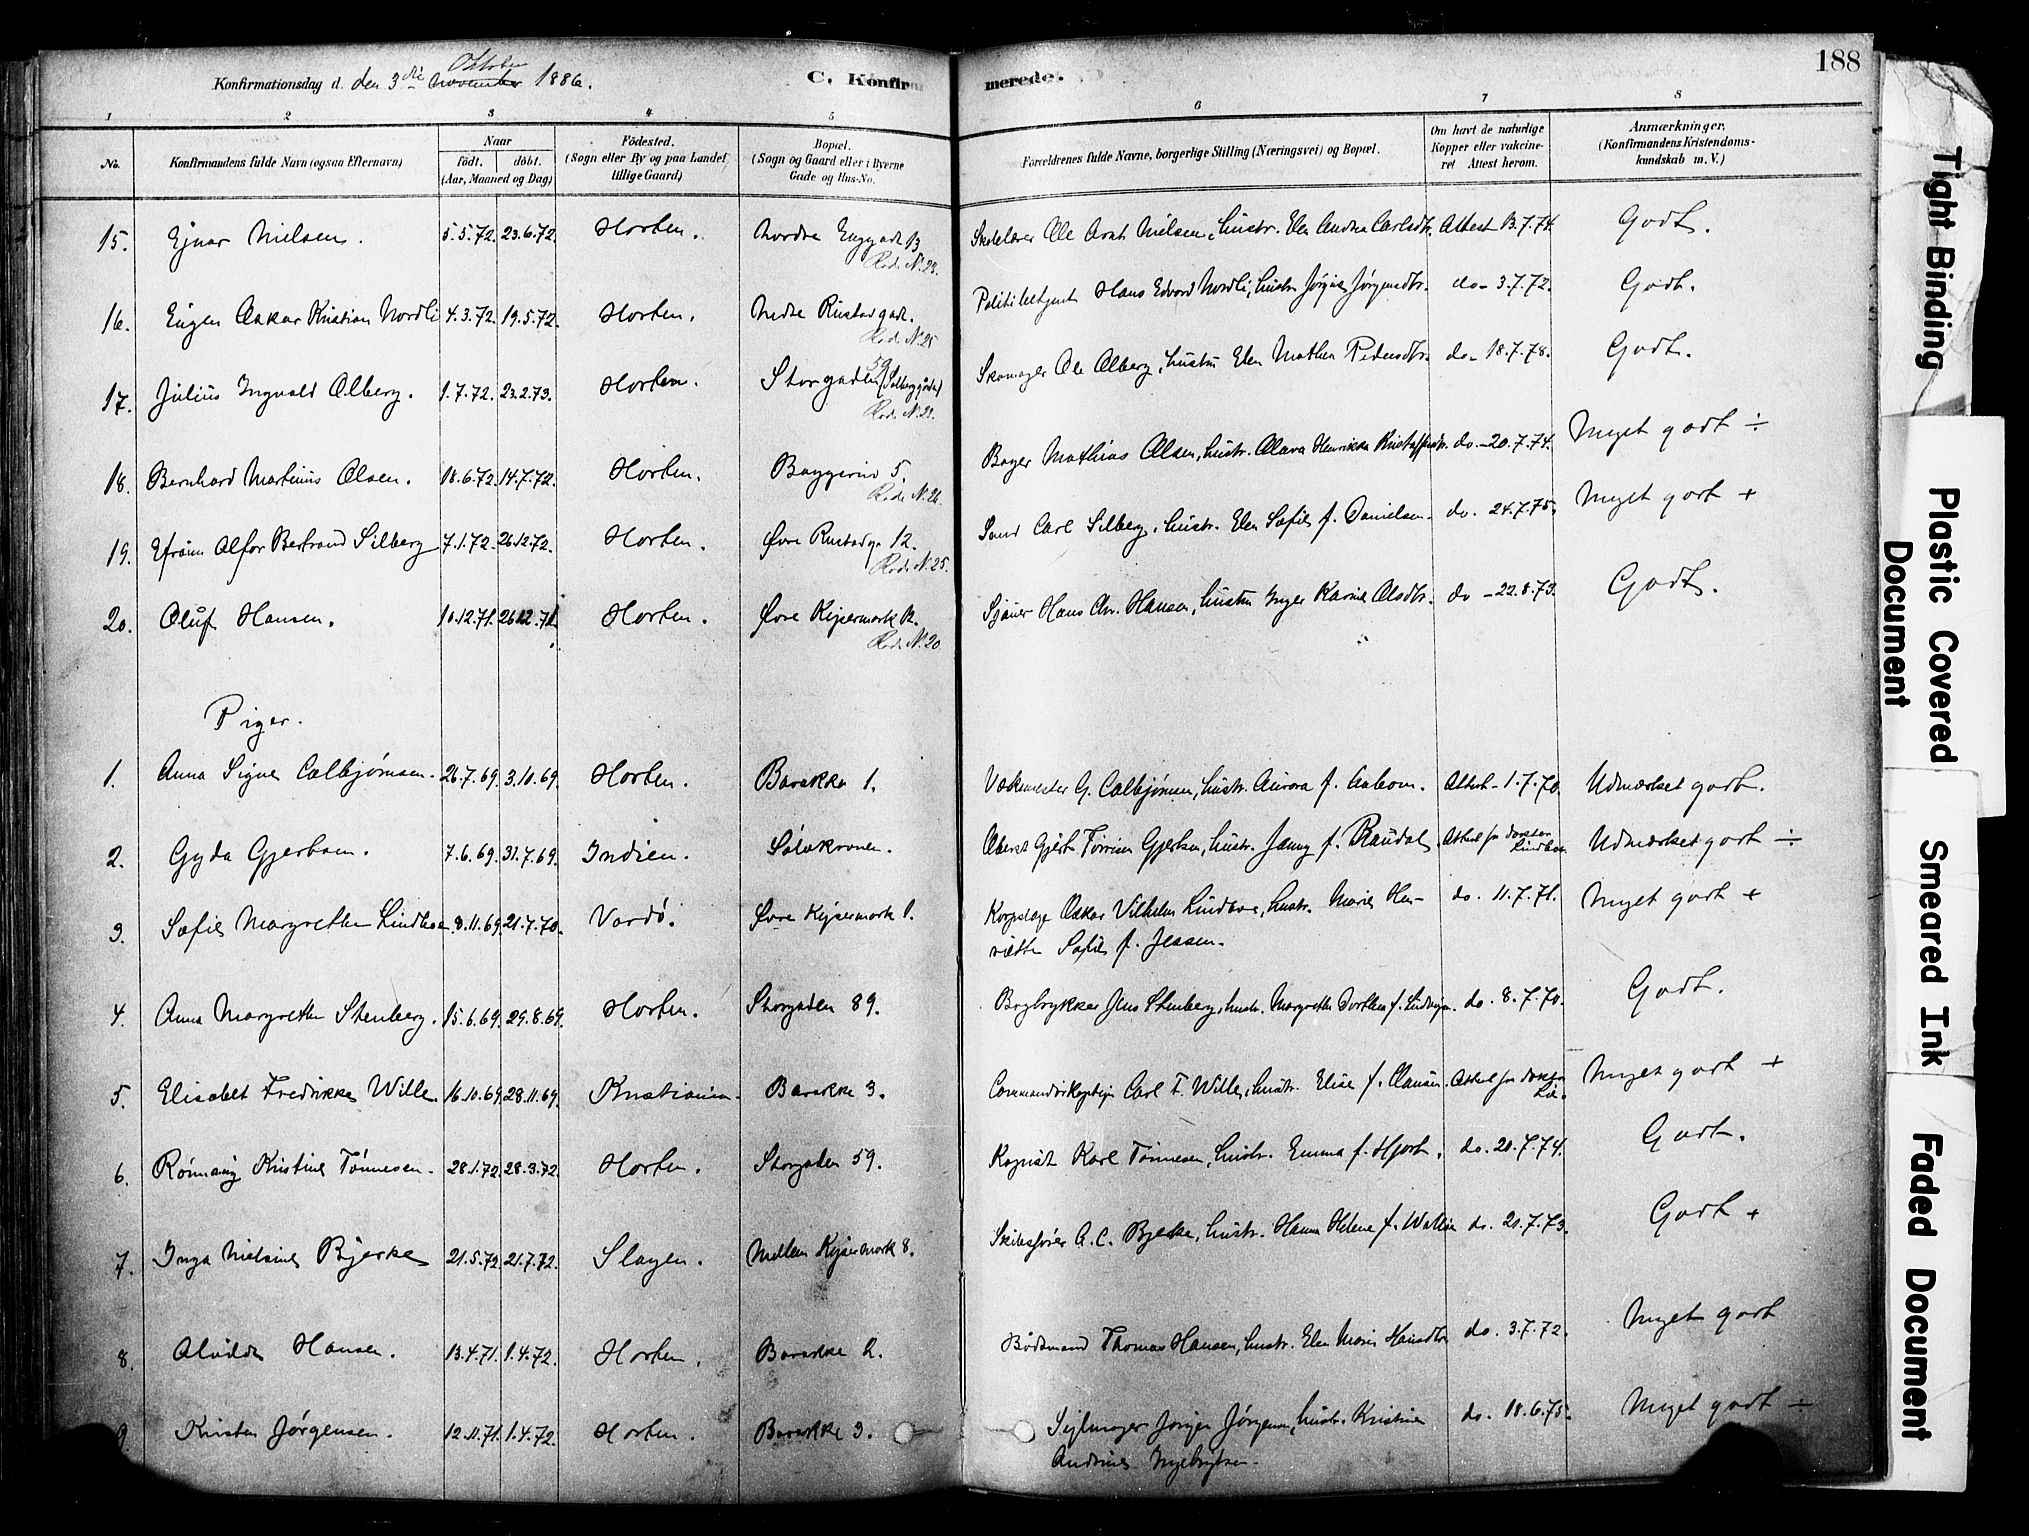 188
Konfirmationsdag d. den 3die November Oktober 1886.
C. Konfirmerede.
1 2 3 4 5 6 7 8
No.
Konfirmandens fulde Navn (ogsaa Efternavn)
Naar
født. døbt.
(Aar, Maaned og Dag)
Fødested.
(Sogn eller By og paa Landet
tillige Gaard)
Bopæl.
(Sogn og Gaard eller i Byerne
Gade og Hus-No.
Forældrenes fulde Navne, borgerlige Stilling (Næringsvei) og Bopæl.
Om havt de naturlige
Kopper eller vakcine-
ret Attest herom.
Anmærkninger.
(Konfirmandens Kristendoms-
kundskab m. V.)
15. Ejnar Nielsen. 5.5.72. 23.6.72. Horten. Nordre Enggade 13 Skolelærer Ole Arnt Nielsen, hustr. Elen Andrea Carlsdtr. Attest 13.7.74. Godt.
Rode N. 23.
16. Eugen Oskar Kristian Nordli 4.3.72. 19.5.72. Horten. Nedre Rustadgade. Politibetjent Hans Edvard Nordli, hustru Jørgine Jørgensdtr. do - 3.7.72. Godt.
Rode N. 25
17. Julius Ingvald Olberg. 1.7.72. 23.2.73. Horten. Storgaden 59 (Solberggården) Skomager Ole Olberg, hustru Elen Mathea Pedersdtr. do - 18.7.78. Godt.
Rode N. 21.
18. Bernhard Martinius Olsen. 18.6.72. 14.7.72. Horten. Baggerud 5. Bager Mathias Olsen, hustr. Olava Henrikka Kristoffersdtr. do - 20.7.74. Meget godt ÷
Rode N. 26.
19. Efraim Alfor Bertrand Silberg 7.1.72. 26.12.72. Horten. Øvre Rustadga 12. Carl Silberg, hustr. Elen Sofie f. Danielsen. do. 24.7.75. Meget godt +
Rode N. 25.
20. Oluf Hansen. 10.12.71. 26.12.71. Horten. Øvre Kejsermark 12. Sjauer Hans Chr. Hansen, hustru Inger Karine Olsdtr. do - 22.8.73. Godt.
Rode N. 20.
Piger.
1. Anna Signe Calbjørnsen. 26.7.69. 3.10.69. Horten. Barakke 1. G. Calbjørnsen, hustr. Aurora f. Attest - 1.7.70. Udmærket godt.
2. Gyda Gjertsen. 7.6.69. 31.7.69. Indien. Gjert Gjertsen, hustr. Jenny f. Attest fra doktor Lindboe Udmærket godt ÷
3. Sofie Margrethe Lindboe 8.11.69. 21.7.70. Vardø. Øvre Kejsermark 1. Korpslæge Oskar Vilhelm Lindboe, hustr. Marie Hen-
riette Sofie f. Jessen. do. 11.7.71. Meget godt +
4. Anna Margrethe Stenberg. 15.6.69. 29.8.69. Horten. Storgaden 89. Bogtrykker Jens Stenberg, hustr. Margrethe Dorthea f. Ludvigsen. do. 8.7.70. Godt.
5. Elisabet Fredrikke Wille. 16.10.69. 28.11.69. Kristiania. Barakke 3. Commandørkaptejn Carl F. Wille, hustr. Elise f. Clausen. Attest fra doktor Meget godt +
6. Rønnaug Kristine Tønnesen. 28.1.72. 28.3.72. Horten. Storgaden 59. Kopist Karl Tønnesen, hustr. Emma f. Hjort. do. 20.7.74. Godt.
7. Inga Nielsine Bjerke 21.5.72. 21.7.72. Slagen. Mellem Kejsermark 8. Skibsfører A. C. Bjerke, hustr. Hanna Helene f. do. 21.7.73. Godt +
8. Alvilde Hansen. 13.4.71. 1.4.72. Horten. Barakke 2. Bådsmand Thomas Hansen, hustr. Elen Marie Hansdtr do. 3.7.72. Meget godt
9. Kirsten Jørgensen. 12.11.71. 1.4.72. Horten. Barakke 3. Sejlmager Jørgen Jørgensen, hustr. Kristine
Andrine Ingebrigtsen. do. 18.6.75. Meget godt ÷
Tight Binding
Plastic Covered
Document
Smeared Ink
Faded Document